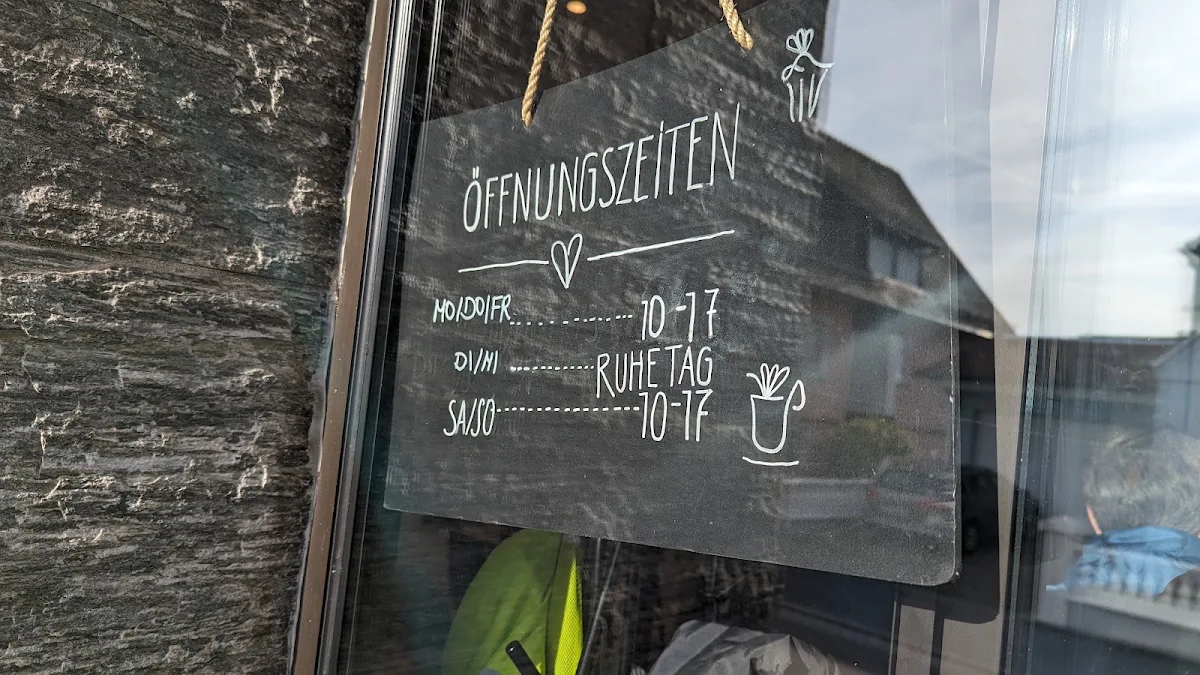 ÖFFNUNGSZEITEN
MO/DO/FR..............10-17
DI/MI..............RUHETAG
SA/SO..............10-17